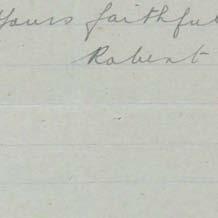 Yours faithful
Robert